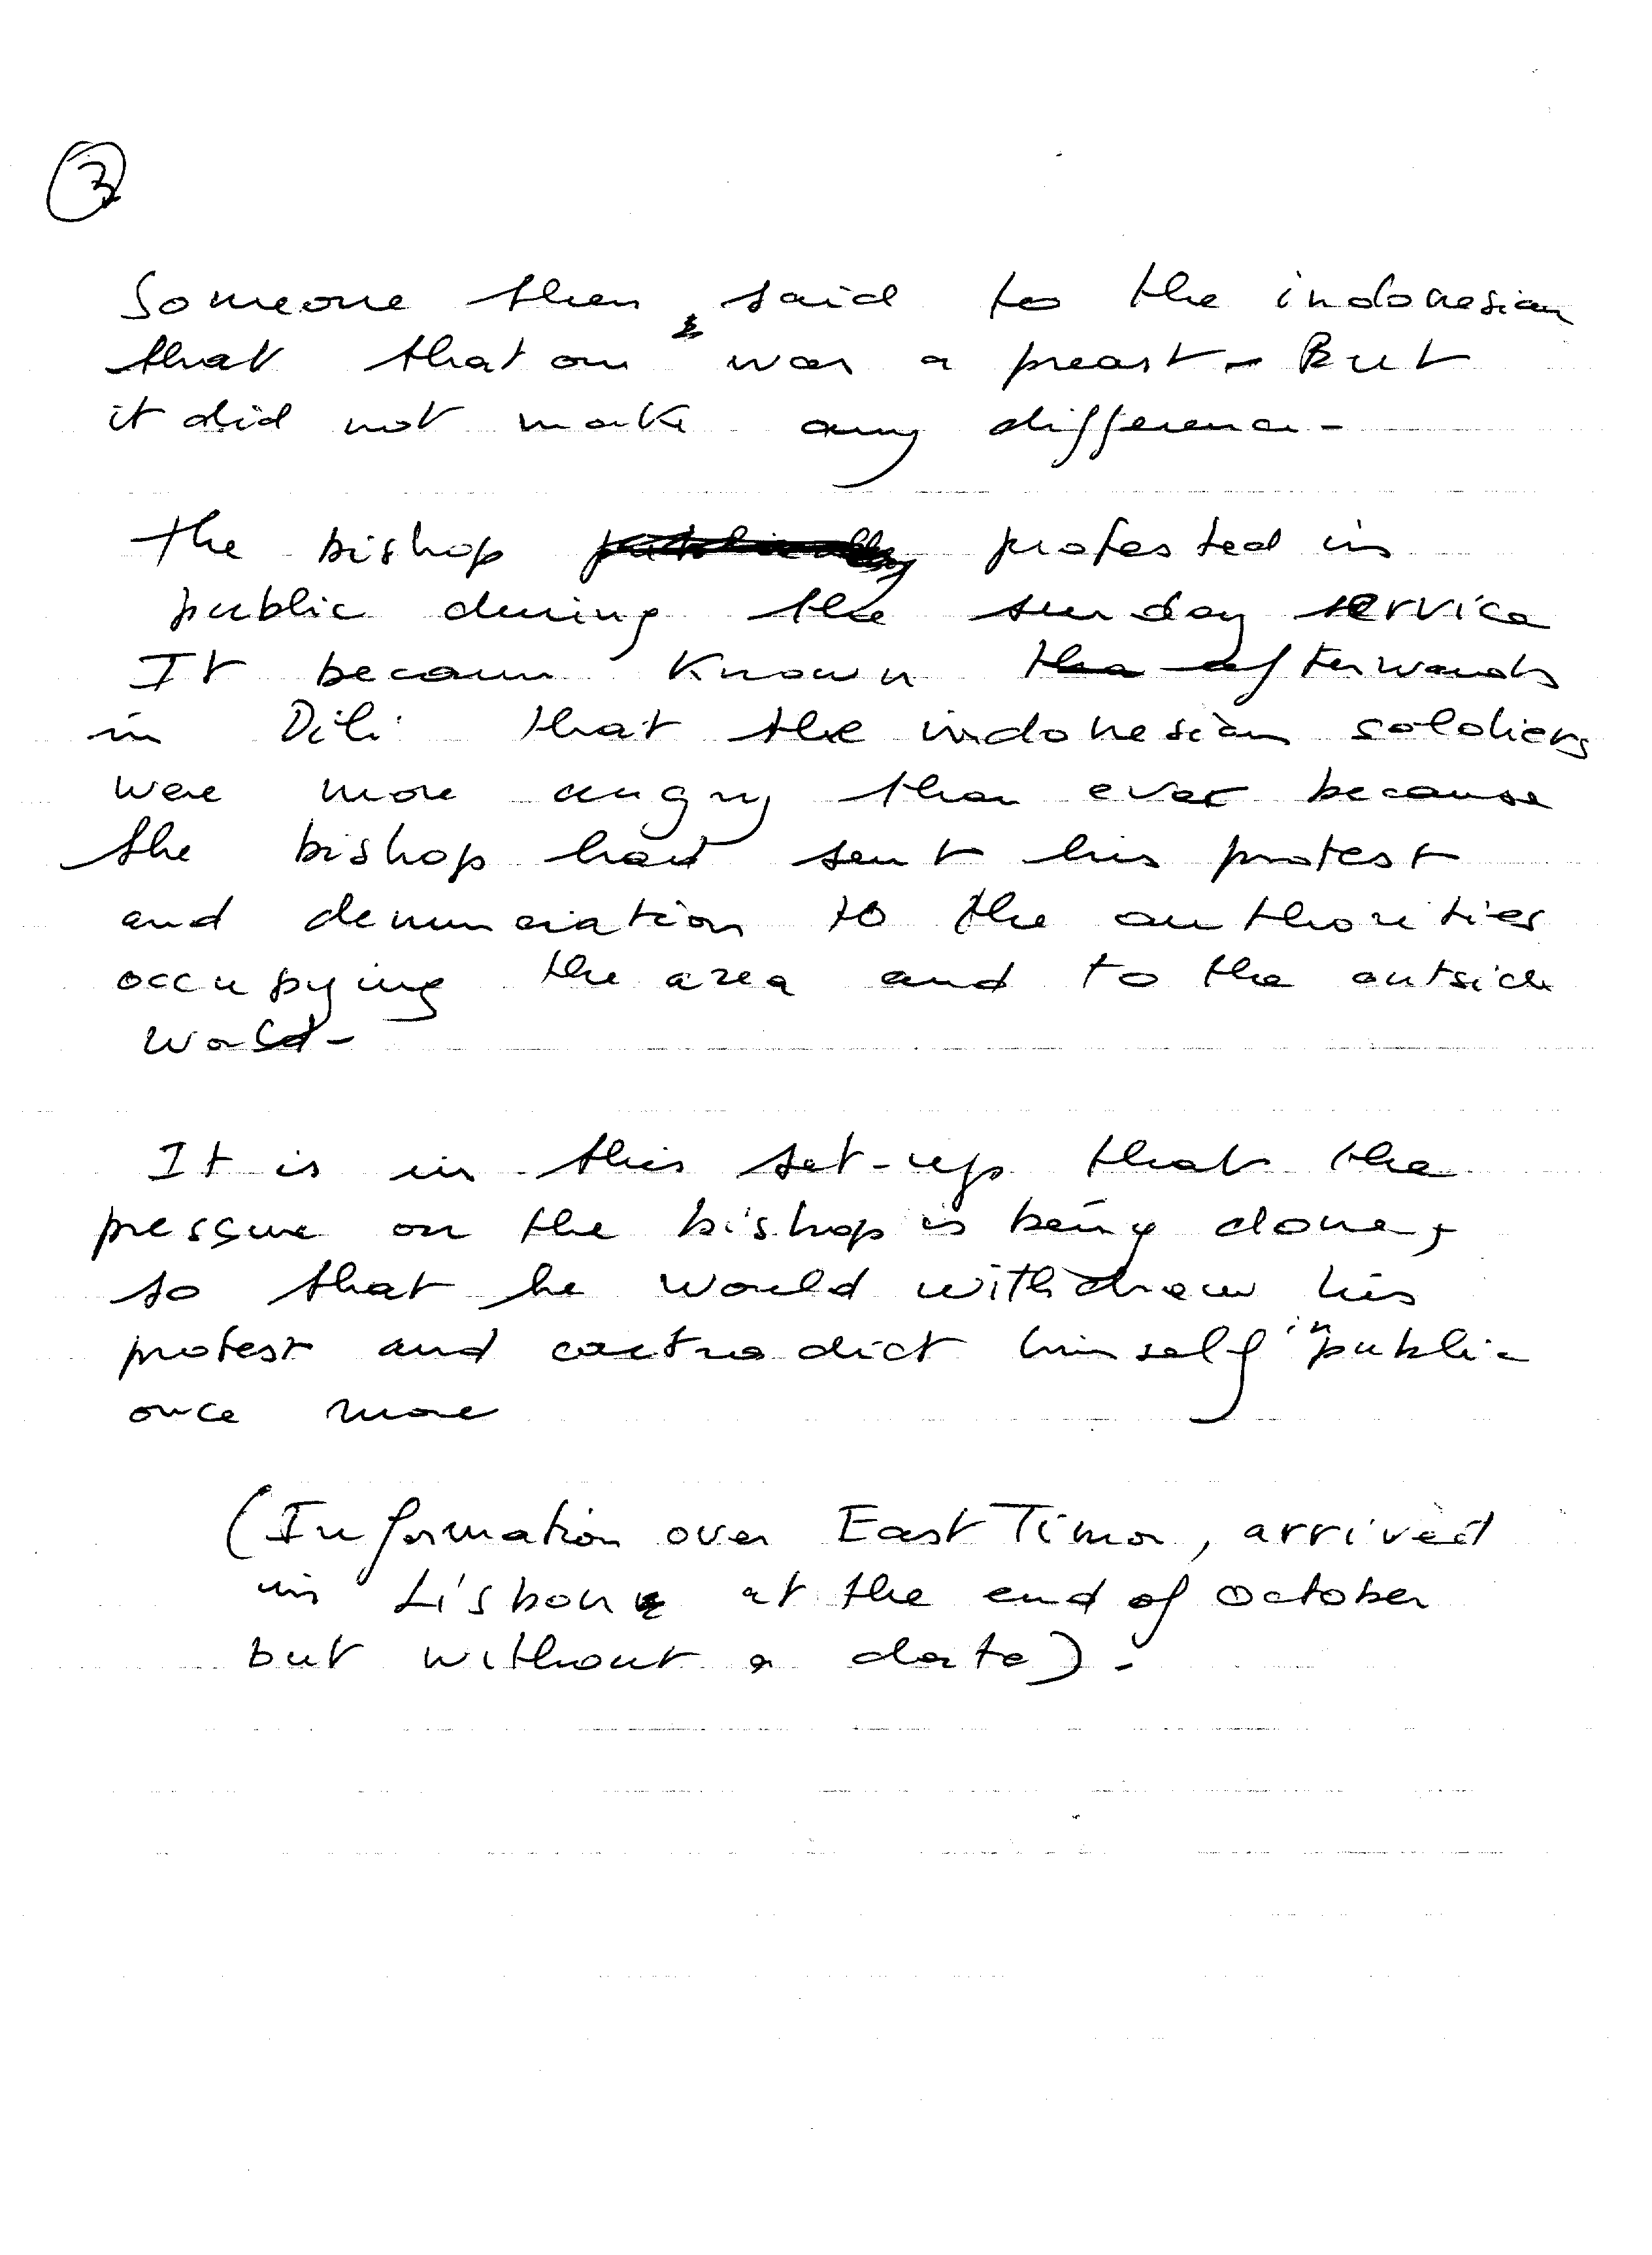 3
Someone then said to the indonesian
that that one was a preast - But
it did not make any difference -
the bishop publically protested in
public during the sunday service
It became known tha afterwards
in Dili that the indonesian soldiers
were more angry than ever because
the bishop had sent his protest
and denunciation to the authorities
occupying the area and to the outside
world -
It is in this set-up that the
pressure on the bishop is being done,
so that he would withdraw his
protest and contradict himself in public
once more
(Information over East Timor, arrived
in Lisbon at the end of october
but without a date). -